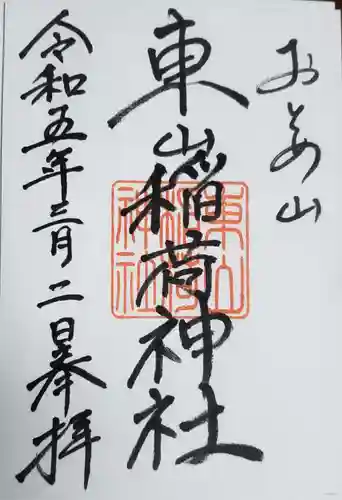 おとめ山
東山稲荷神社
東山稲荷神社
令和五年三月二日奉拝